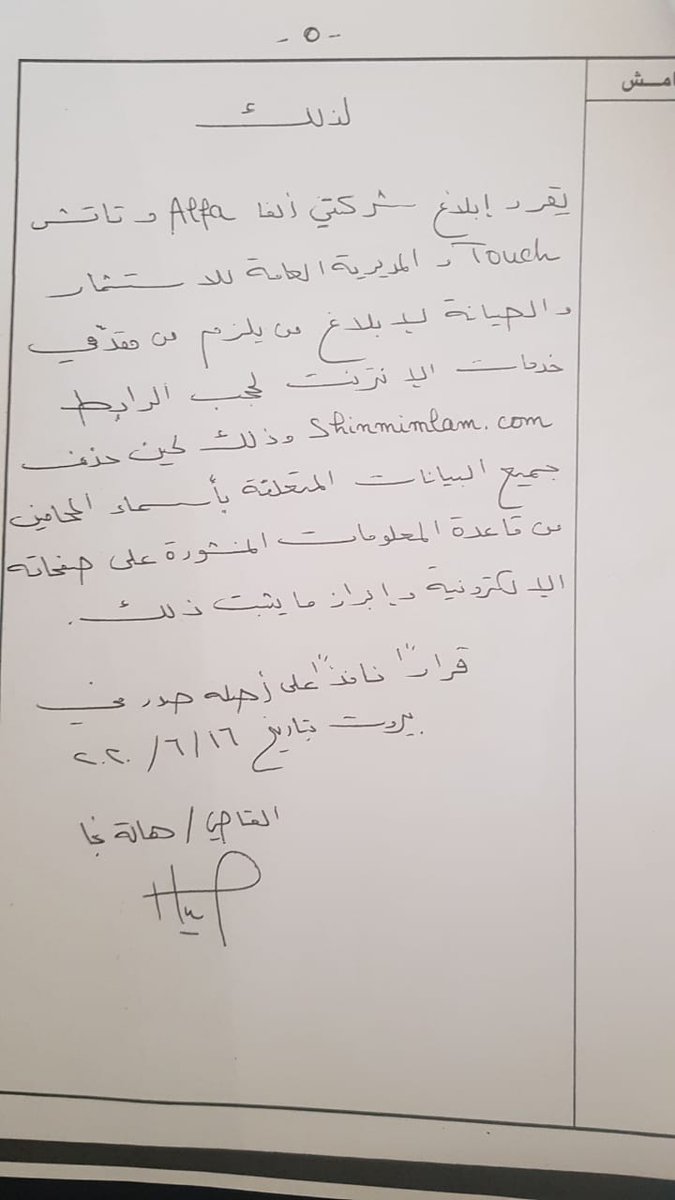 - ٥ -
امش
لذلك
يقرر إبلاغ شركتي ألفا Alfa و تاتش
Touch و المديرية العامة للاستثمار
و الصيانة لإبلاغ من يلزم من مقدّمي
خدمات الإنترنت لحجب الرابط
Shinmimlam.com وذلك لحين حذف
جميع البيانات المتعلقة بأسماء المحامين
من قاعدة المعلومات المنشورة على صفحاته
الإلكترونية و إبراز ما يثبت ذلك.
قراراً نافذاً على أصله صدر في
بيروت بتاريخ ١٦/٦/٢٠٢٠
القاضي / هالة نجا